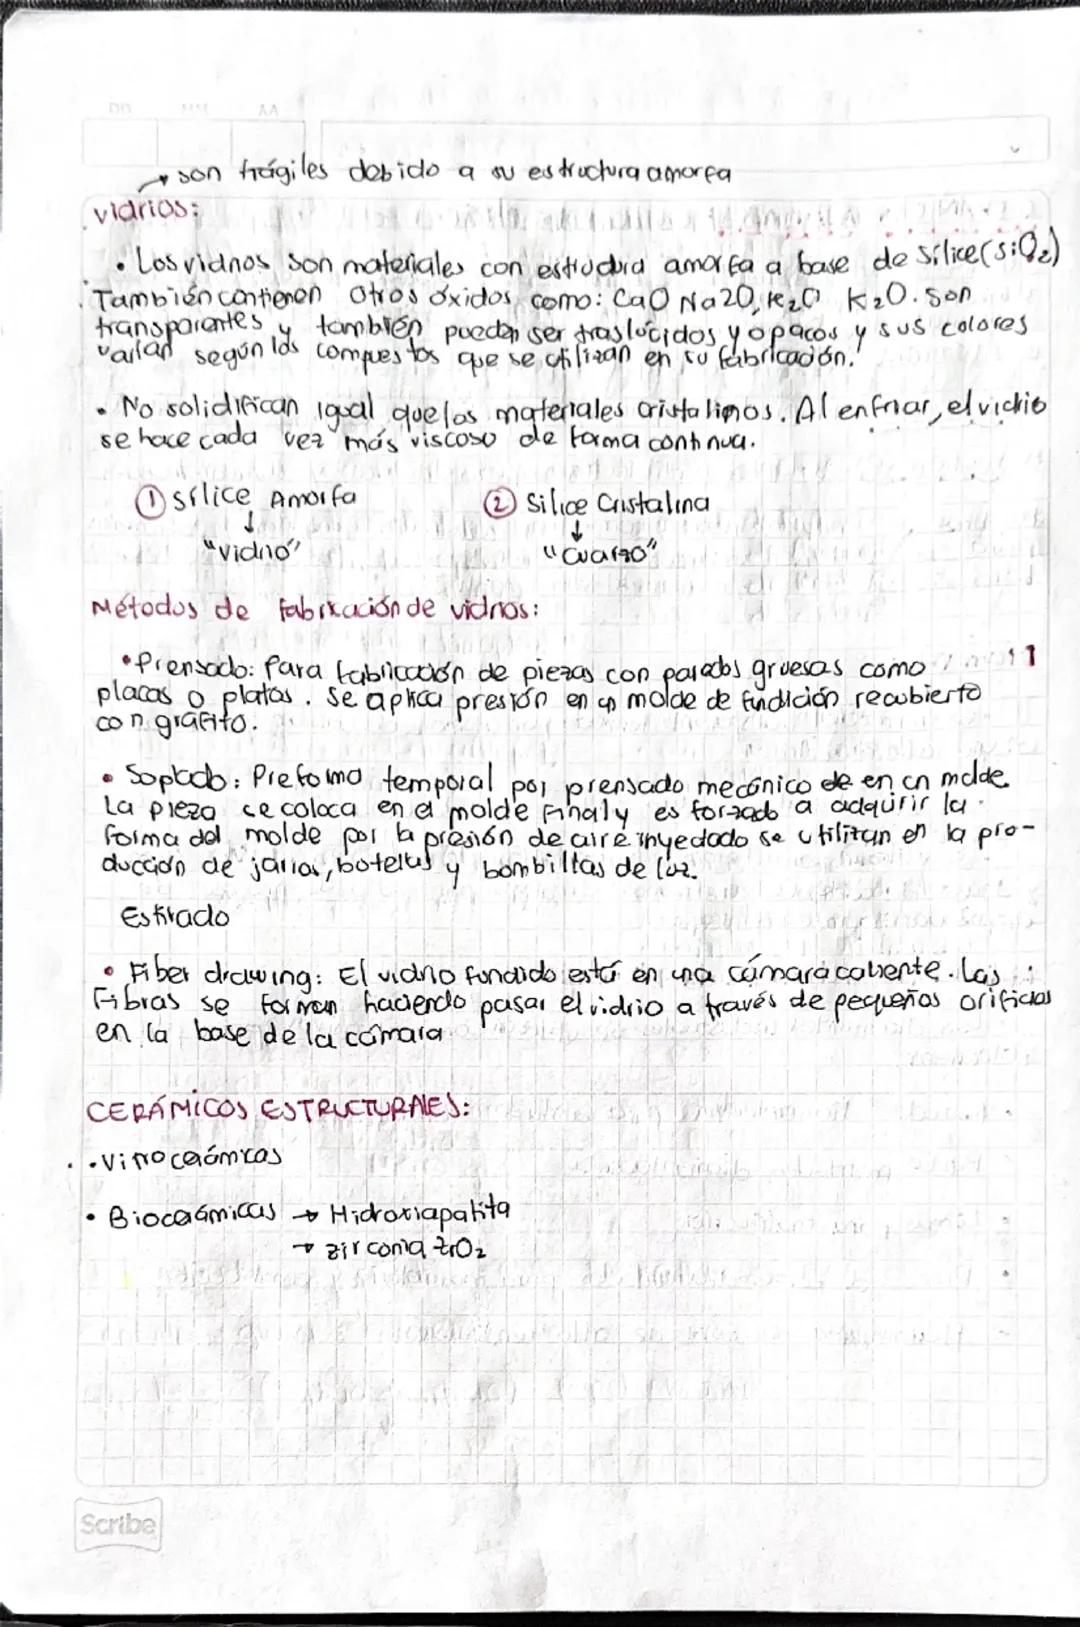 DD MM AA
→ son frágiles debido a su estructura amorfa
Vidrios:
• Los vidrios son materiales con estructura amorfa a base de Sílice (SiO2)
También contienen otros óxidos como: CaO Na2O, K2O K2O. Son
transparentes y también pueden ser traslúcidos y opacos y sus colores
varían según los compuestos que se utilizan en su fabricación.
• No solidifican igual que los materiales cristalinos. Al enfriar, el vidrio
se hace cada vez más viscoso de forma continua.
① Sílice Amorfa ② Silice Cristalina
↓ ↓
"Vidrio" "Cuarzo"
Métodos de fabricación de vidrios:
• Prensado: Para fabricación de piezas con paredes gruesas como
placas o platos. Se aplica presión en un molde de fundición recubierto
con grafito.
• Soplado: Preforma temporal por prensado mecánico de en un molde.
La pieza se coloca en el molde final y es forzado a adquirir la
forma del molde por la presión de aire inyectado se utilizan en la pro-
ducción de jarras, botellas y bombillas de luz.
Estirado
• Fiber drawing: El vidrio fundido está en una cámara caliente. Las
Fibras se forman haciendo pasar el vidrio a través de pequeños orificios
en la base de la cámara
CERÁMICOS ESTRUCTURALES:
• Vitrocerámicas
• Biocerámicas → Hidroxiapatita
→ Zirconia ZrO2
Scribe